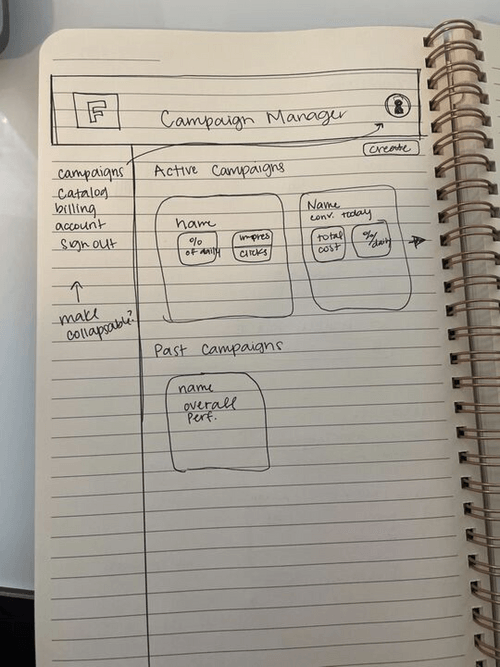 F
Campaign Manager
create
campaigns
catalog
billing
account
sign out
make
collapsable?
Active Campaigns
name
%
of daily
impres
clicks
Name
conv. today
total
cost
%/daily
Past Campaigns
name
overall
perf.